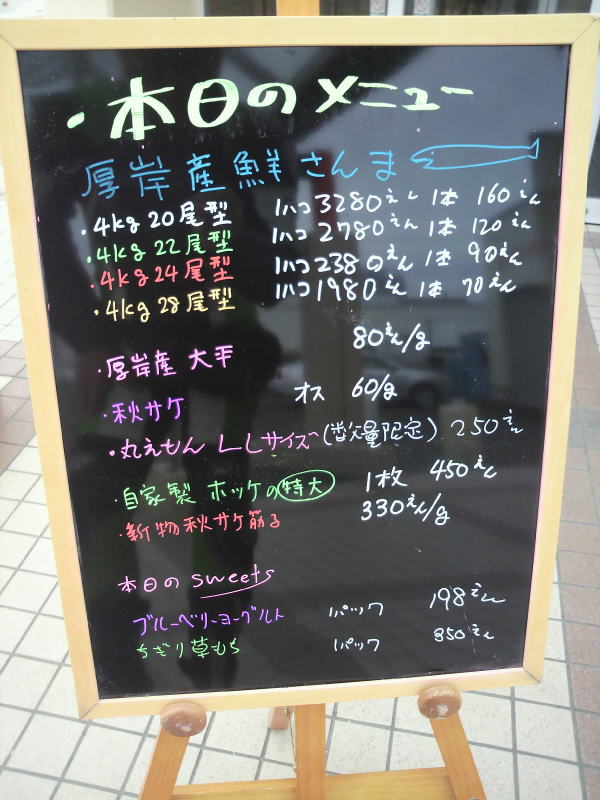 ・本日のメニュー
厚岸産鮮さんま
・4kg 20尾型 1ハコ3280えん 1本 160えん
・4kg 22尾型 1ハコ2780えん 1本 120えん
・4kg 24尾型 1ハコ2380えん 1本 90えん
・4kg 28尾型 1ハコ1980えん 1本 70えん
・厚岸産 大平 80えん/g
・秋サケ オス 60/g
・丸えもん LLサイズ (数量限定) 250えん
・自家製 ホッケの特大 1枚 450えん
・新物秋サケ筋子 330えん/g
本日の sweets
ブルーベリーヨーグルト 1パック 198えん
ちぎり草もち 1パック 350えん